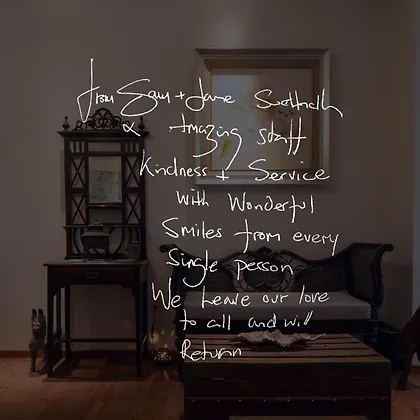 from Sam + Jane
& Amazing staff
Kindness + Service
with Wonderful
Smiles from every
Single person
We Leave our love
to all and will
Return